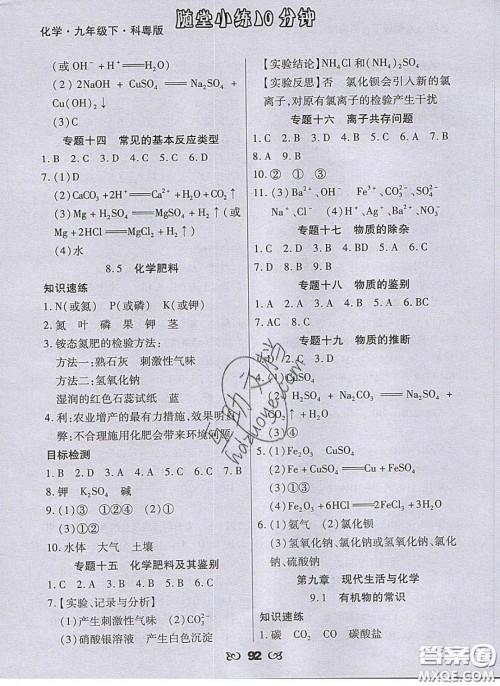 随堂小练10分钟
化学·九年级下·科粤版
(或 OH⁻+H⁺══H₂O)
(2) 2NaOH + CuSO₄ ══ Na₂SO₄ +
Cu(OH)₂↓
(3)C
专题十四 常见的基本反应类型
1. B 2. C 3. D 4. D 5. B 6. B
7. (1)D
(2)CaCO₃+2H⁺══Ca²⁺+H₂O+CO₂↑
(3)Mg + H₂SO₄══MgSO₄ + H₂↑(或
Mg + 2HCl══MgCl₂+H₂↑)
(4)水
8.5 化学肥料
知识速练
1. N(或氮) P(或磷) K(或钾)
2. 氮 叶 磷 果 钾 茎
3. 铵态氮肥的检验方法:
方法一:熟石灰 刺激性气味
方法二:氢氧化钠
湿润的红色石蕊试纸 蓝
4. 利:农业增产的最有力措施,效果明显
弊:不合理施用化肥会带来环境问题
目标检测
1. B 2. D 3. B 4. A 5. C 6. B 7. D
8. 钾 K₂SO₄ 碱
9. (1)③ ①②④ (2)①
10. 水体 大气 土壤
专题十五 化学肥料及其鉴别
1. C 2. A 3. D 4. B 5. A 6. C
7. 【实验、记录与分析】
(1)产生刺激性气味 (2)CO₃²⁻
(3)硝酸银溶液 产生白色沉淀
【实验结论】NH₄Cl 和(NH₄)₂SO₄
【实验反思】否 氯化钡会引入新的氯
离子,对原有氯离子的检验产生干扰
专题十六 离子共存问题
1. C 2. D 3. C 4. B 5. D 6. A 7. B
8. A 9. B
10. ② ① ③
11. (3)Ba²⁺、OH⁻ Fe³⁺、CO₃²⁻、SO₄²⁻
Na⁺、Cl⁻ (4)H⁺、Ag⁺、Ba²⁺、CO₃²⁻
专题十七 物质的除杂
1. B 2. D 3. D 4. B 5. A 6. C
专题十八 物质的鉴别
1. C 2. B 3. A 4. B 5. B 6. C
7. AC 8. C 9. C
专题十九 物质的推断
2. D 3. C
(1)CuSO₄
(2)CaCl₂ + Na₂CO₃ ══ Na₂SO₄ +
(3)④
5. (1)Fe₂O₃ CuSO₄
(2)Fe + CuSO₄══Cu + FeSO₄
(3)③①
(4)Fe₂O₃+6HCl══2FeCl₃+3H₂O
6. (1)氨气 (2)氯化钡
(3)氢氧化钠、碳酸钠或氢氧化钠、氯化
钠、硫酸钠
第九章 现代生活与化学
9.1 有机物的常识
知识速练
1. 碳 CO₂ CO 碳酸盐
92
答案圈
MXQE.COM